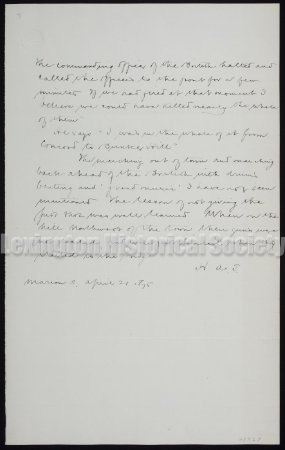 The commanding officer of the British halted and
called the officers to the front for a few
minutes. If we had fired at that moment I
believe we could have killed nearly the whole
of them"
He says "I was in the whole of it from
Concord to Bunker Hill"
The marching out of town and marching
back ahead of the British with drums
beating and "good music" I have not seen
mentioned. The lesson of not giving the
first shot was well learned. When on the
hill Northwest of the town their guns were
Lexington Historical Society
to the
Marion O, April 21 1895